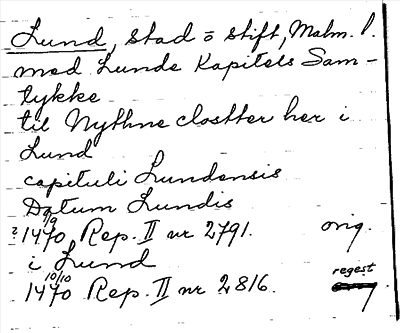 Lund, stad o stift, Malm. l.
med Lunde Kapitels Sam-
tykke
til Nythne clostter her i
Lund
capituli Lundensis
Datum Lundis
2/9 1470, Rep. II nr 2791. orig.
i Lund
10/10 1470 Rep. II nr 2816. regest